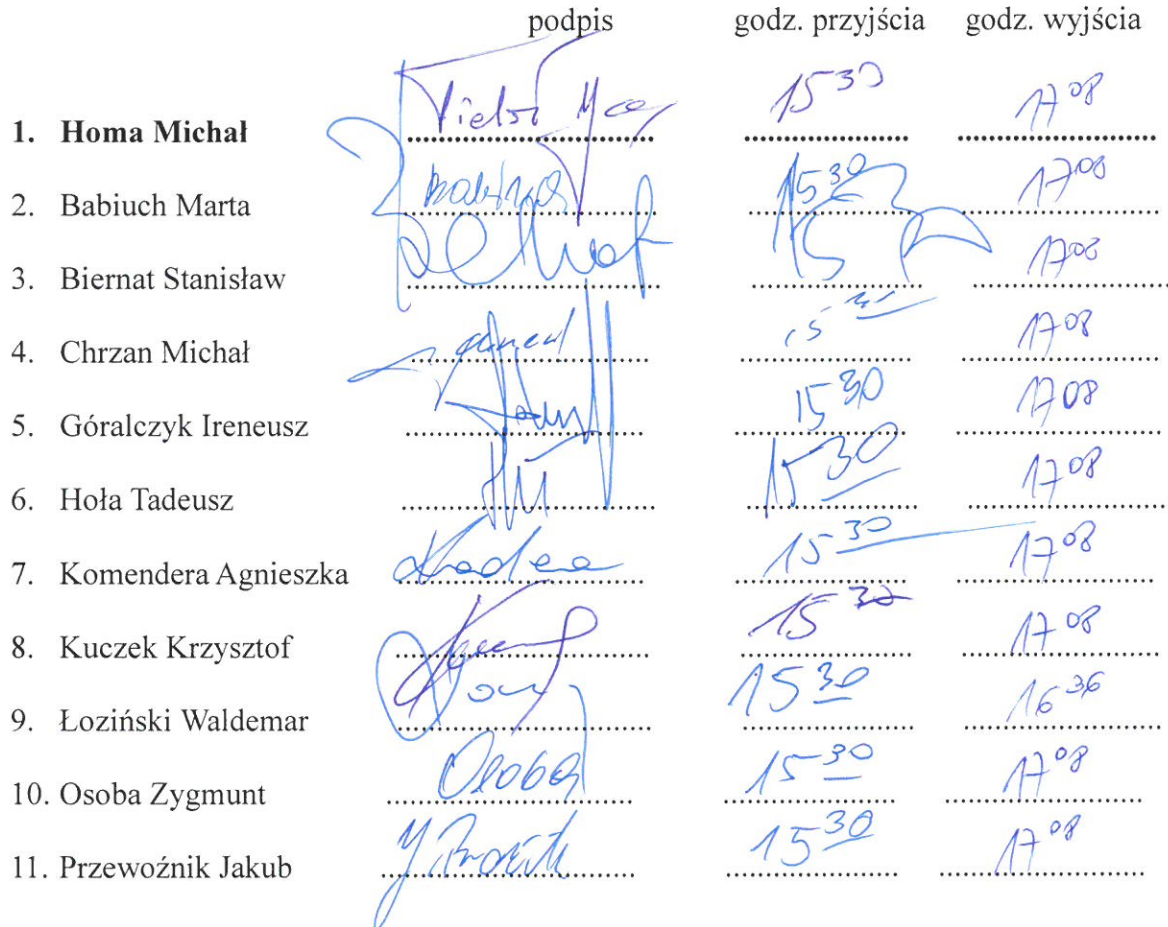 podpis godz. przyjścia godz. wyjścia
1. Homa Michał 15³⁰ 17⁰⁸
2. Babiuch Marta 15³⁰ 17⁰⁸
3. Biernat Stanisław 17⁰⁸
4. Chrzan Michał 17⁰⁸
5. Góralczyk Ireneusz 15³⁰ 17⁰⁸
6. Hoła Tadeusz 15³⁰ 17⁰⁸
7. Komendera Agnieszka 15³⁰ 17⁰⁸
8. Kuczek Krzysztof 17⁰⁸
9. Łoziński Waldemar 15³⁰ 16³⁶
10. Osoba Zygmunt Osoba 15³⁰ 17⁰⁸
11. Przewoźnik Jakub 15³⁰ 17⁰⁸